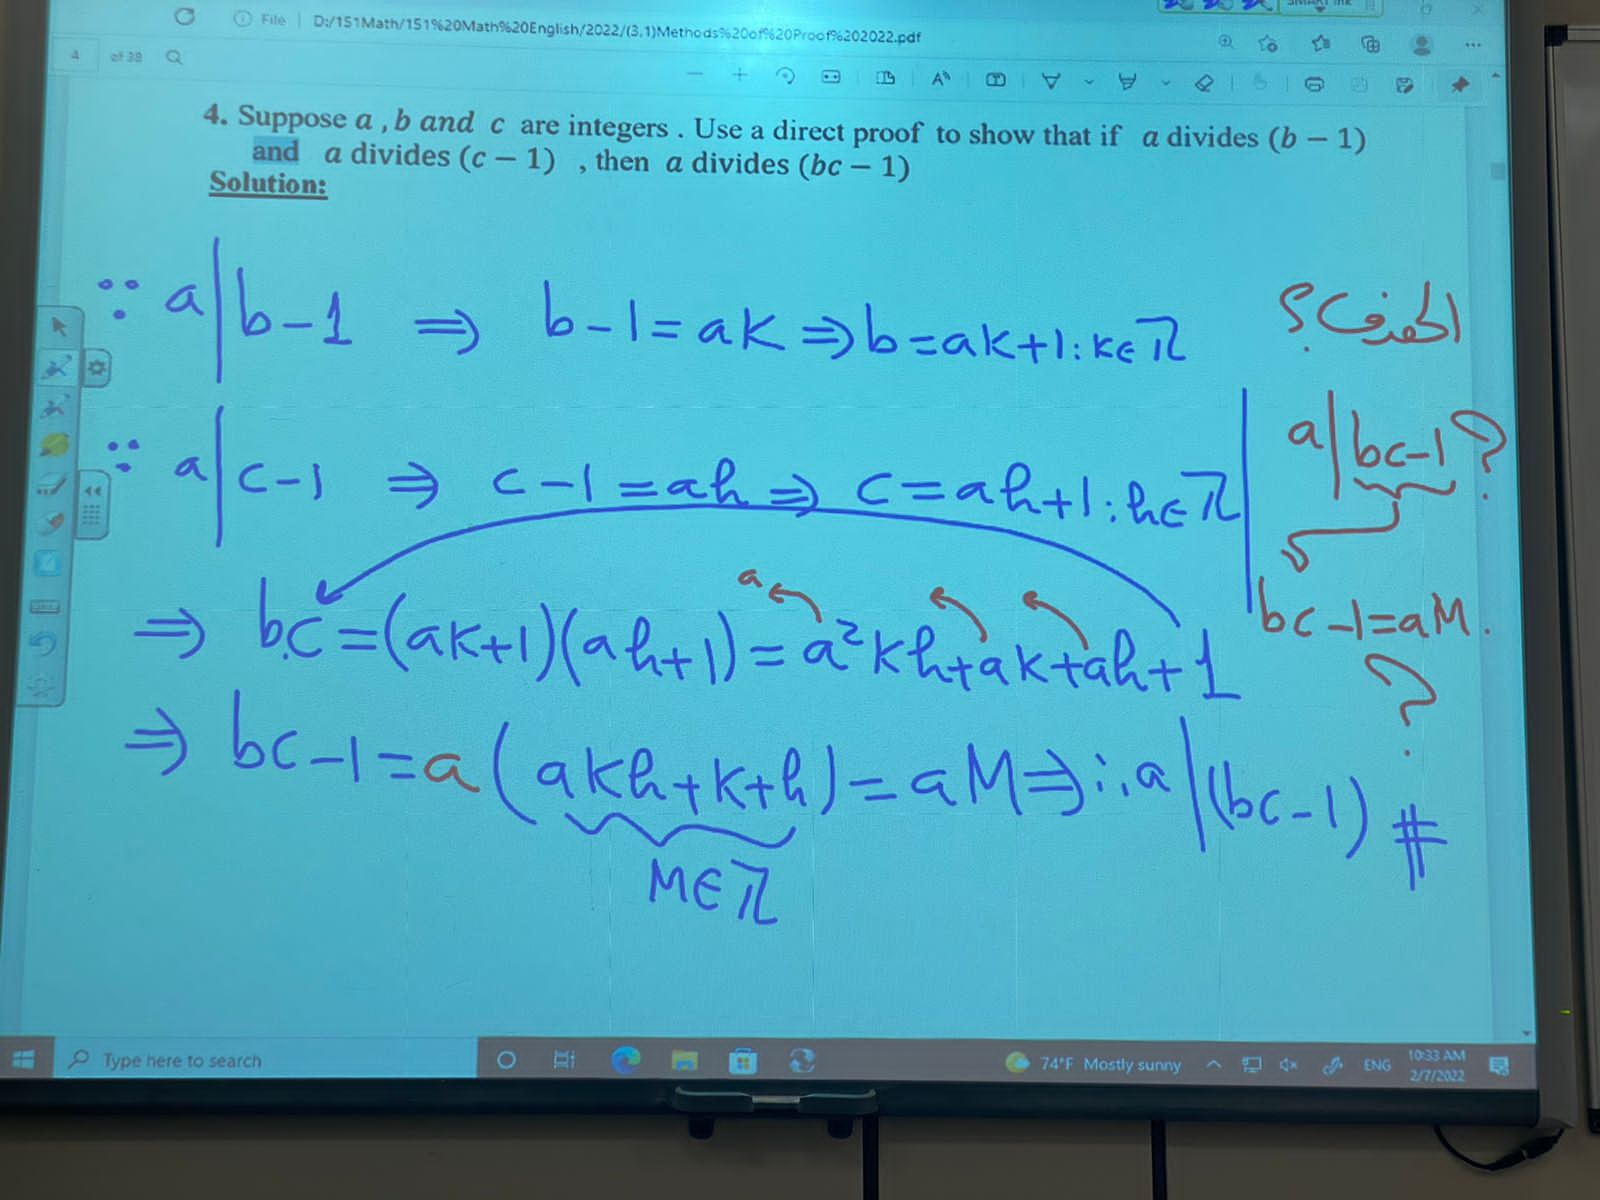 File | D:/151Math/151%20Math%20English/2022/(3,1)Methods%20of%20Proof%202022.pdf
4 of 39
4. Suppose a , b and c are integers . Use a direct proof to show that if a divides (b − 1)
and a divides (c − 1) , then a divides (bc − 1)
Solution:
∵ a | b-1 ⇒ b-1=ak ⇒ b=ak+1 : k∈ℤ
الهدف؟
∵ a | c-1 ⇒ c-1=ah ⇒ c=ah+1 : h∈ℤ
a | bc-1 ?
bc-1=aM.
?
a
⇒ b.c=(ak+1)(ah+1)=a²kh+ak+ah+1
⇒ bc-1=a(akh+k+h)=aM ⇒ ∴ a | (bc-1) #
M∈ℤ
Type here to search
74°F Mostly sunny
ENG
10:33 AM
2/7/2022